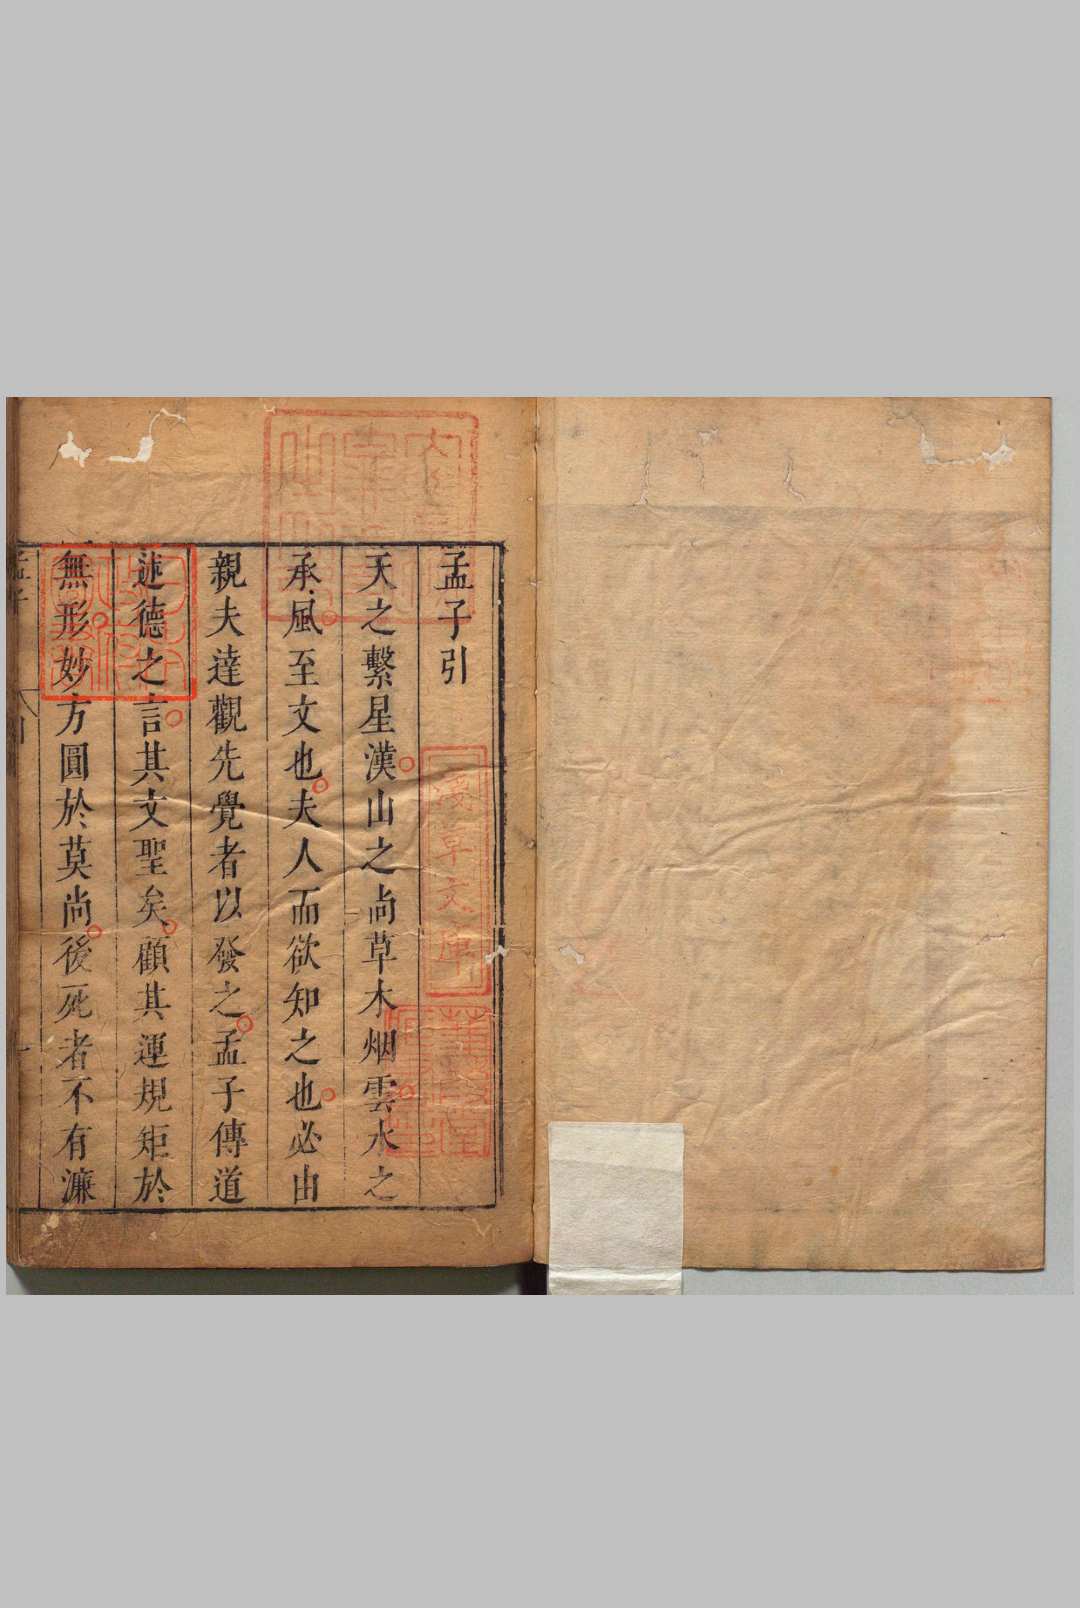 孟子引
天之繫星漢山之尚草木烟雲水之
承風至文也夫人而欲知之也必由
親夫達觀先覺者以發之孟子傳道
述德之言其文聖矣顧其運規矩於
無形妙方圓於莫尚後死者不有濂
孟子
淺草文庫